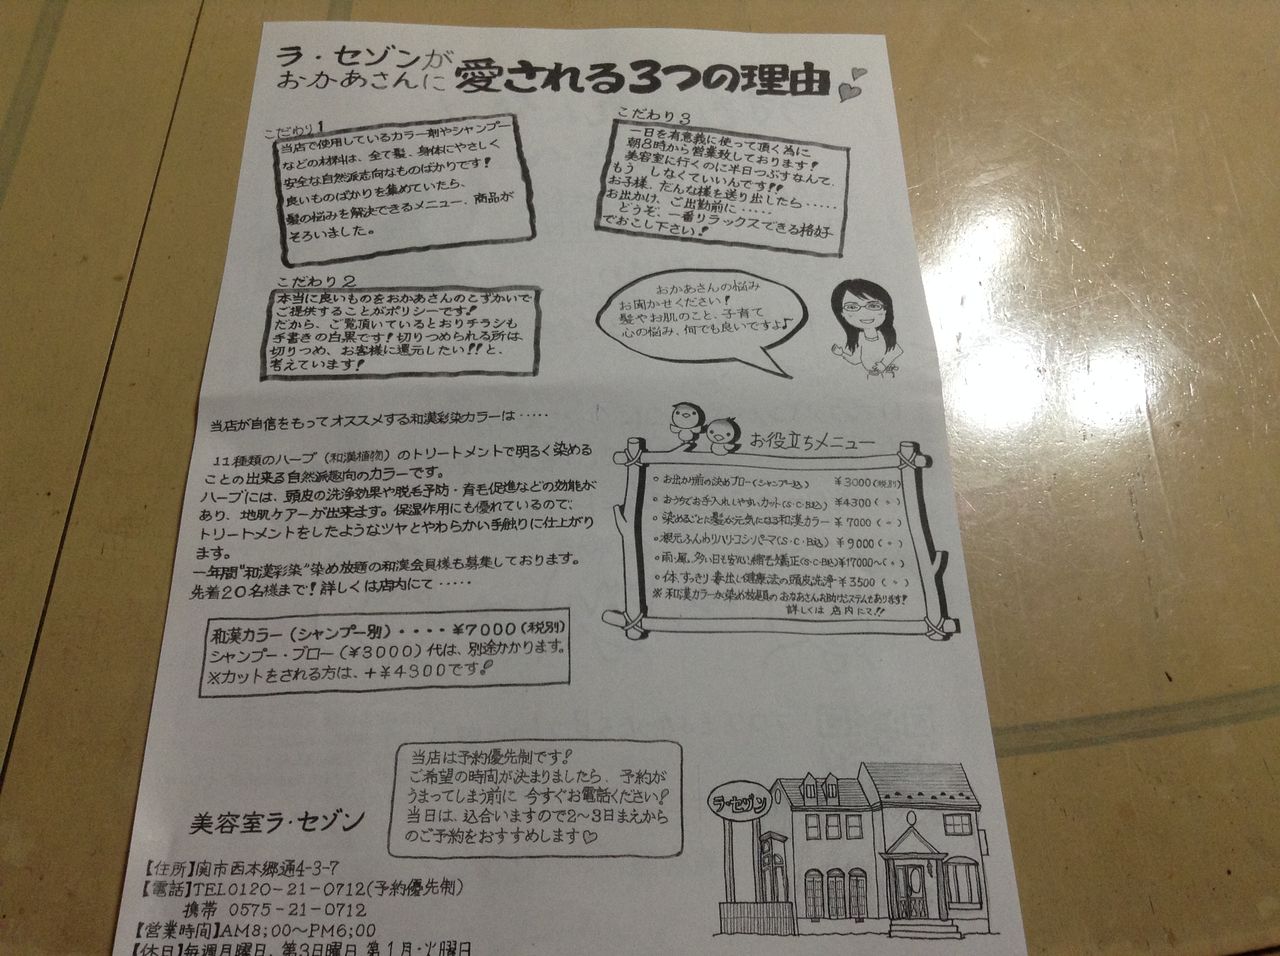 ラ・セゾンが
おかあさんに愛される3つの理由
こだわり1
当店で使用しているカラー剤やシャンプー
などの材料は、全て髪、身体にやさしく
安全な自然派志向なものばかりです!
良いものばかりを集めていたら、
髪の悩みを解決できるメニュー、商品が
そろいました。
こだわり2
本当に良いものをおかあさんのこずかいで
ご提供することがポリシーです!
だから、ご覧頂いているとおりチラシも
手書きの白黒です!切りつめられる所は、
切りつめ、お客様に還元したい!!と、
考えています!
こだわり3
一日を有意義に使って頂く為に
朝8時から営業致しております!
美容室に行くのに半日つぶすなんて、
もう しなくていいんです!!
お子様、だんな様を送り出したら・・・・・
お出かけ、ご出勤前に・・・・・
どうぞ、一番リラックスできる格好
でおこし下さい!
おかあさんの悩み
お聞かせください!
髪やお肌のこと、子育て
心の悩み、何でも良いですよ♪
当店が自信をもってオススメする和漢彩染カラーは・・・・・
11種類のハーブ(和漢植物)のトリートメントで明るく染める
ことの出来る自然派趣向のカラーです。
ハーブには、頭皮の洗浄効果や脱毛予防・育毛促進などの効能が
あり、地肌ケアーが出来ます。保湿作用にも優れているので、
トリートメントをしたようなツヤとやわらかい手触りに仕上がり
ます。
一年間"和漢彩染"染め放題の和漢会員様も募集しております。
先着20名様まで!詳しくは店内にて・・・・・
和漢カラー(シャンプー別)・・・・¥7000(税別)
シャンプー・ブロー(¥3000)代は、別途かかります。
※カットをされる方は、+¥4300です!
お役立ちメニュー
○お出かけ前の決めブロー(シャンプー込) ¥3000(税別)
○おうちでお手入れしやすいカット(S・C・B込) ¥4300(〃)
○染めるごとに髪が元気になる和漢カラー ¥7000(〃)
○根元ふんわりハリ・コシ・パーマ(S・C・B込) ¥9000(〃)
○雨・風、多い日も安心、縮毛矯正(S・C・B込)¥17000~(〃)
○体、すっきり・毒出し健康法の頭皮洗浄 ¥3500(〃)
※和漢カラーが染め放題のおかあさんお助けシステムもあります!
詳しくは 店内にて!!
当店は予約優先制です!
ご希望の時間が決まりましたら、予約が
うまってしまう前に 今すぐお電話ください!
当日は、込合いますので2~3日まえから
のご予約をおすすめします♡
ラ・セゾン
美容室ラ・セゾン
【住所】関市西本郷通4-3-7
【電話】TEL0120-21-0712(予約優先制)
携帯 0575-21-0712
【営業時間】AM8;00~PM6;00
【休日】毎週月曜日、第3日曜日 第1月・火曜日